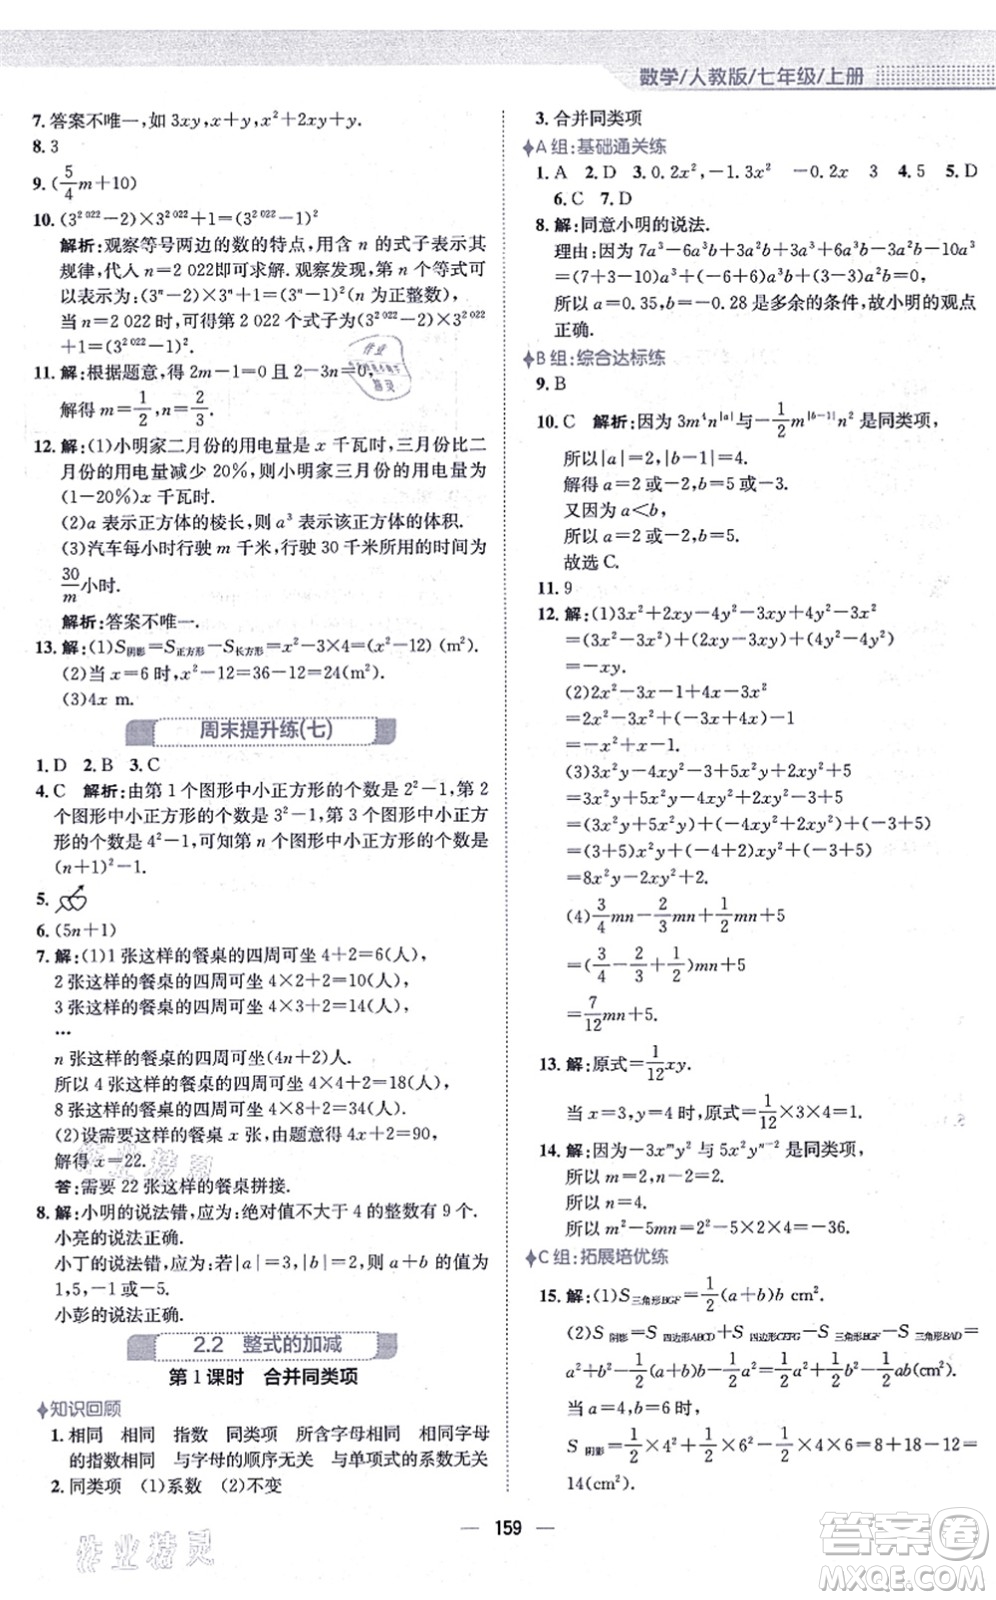 数学/人教版/七年级/上册
7. 答案不唯一,如 3xy,x+y,x²+2xy+y.
8. 3
9. (5/4 m+10)
10. (3^2 022−2)×3^2 022+1=(3^2 022−1)²
解析:观察等号两边的数的特点,用含 n 的式子表示其
规律,代入 n=2 022即可求解. 观察发现,第 n 个等式可
以表示为:(3ⁿ−2)×3ⁿ+1=(3ⁿ−1)²(n 为正整数),
当 n=2 022 时,可得第 2 022 个式子为(3^2 022−2)×3^2 022
+1=(3^2 022−1)².
11. 解:根据题意,得 2m−1=0,2−3n=0,
解得 m=1/2,n=2/3.
12. 解:(1)小明家二月份的用电量是 x 千瓦时,三月份比二
月份的用电量减少 20%,则小明家三月份的用电量为
(1−20%)x 千瓦时.
(2)a 表示正方体的棱长,则 a³ 表示该正方体的体积.
(3)汽车每小时行驶 m 千米,行驶 30 千米所用的时间为
30/m小时.
解析:答案不唯一.
13. 解:(1)S阴影=S正方形−S长方形=x²−3×4=(x²−12) (m²).
(2)当 x=6 时,x²−12=36−12=24(m²).
(3)4x m.
周末提升练(七)
1. D 2. B 3. C
4. C 解析:由第 1 个图形中小正方形的个数是 2²−1,第
2 个图形中小正方形的个数是 3²−1,第 3 个图形中小正方
形的个数是 4²−1,可知第 n 个图形中小正方形的个数是
(n+1)²−1.
5.
6. (5n+1)
7. 解:(1)1 张这样的餐桌的四周可坐 4+2=6(人),
2 张这样的餐桌的四周可坐 4×2+2=10(人),
3 张这样的餐桌的四周可坐 4×3+2=14(人),
…
n 张这样的餐桌的四周可坐(4n+2)人.
所以 4 张这样的餐桌的四周可坐 4×4+2=18(人),
8 张这样的餐桌的四周可坐 4×8+2=34(人).
(2)设需要这样的餐桌 x 张,由题意得 4x+2=90,
解得 x=22.
答:需要 22 张这样的餐桌拼接.
8. 解:小明的说法错,应为:绝对值不大于 4 的整数有 9 个.
小亮的说法正确.
小丁的说法错,应为:若|a|=3,|b|=2,则 a+b 的值为
1,5,−1 或−5.
小彭的说法正确.
2.2 整式的加减
第 1 课时 合并同类项
知识回顾
1. 相同 相同 指数 同类项 所含字母相同 相同字母
的指数相同 与字母的顺序无关 与单项式的系数无关
2. 同类项 (1)系数 (2)不变
3. 合并同类项
A 组:基础通关练
1. A 2. D 3. 0.2x²,−1.3x² −0.2x 3 4. 5 5. D
6. C 7. D
8. 解:同意小明的说法.
理由:因为 7a³−6a³b+3a²b+3a³+6a³b−3a²b−10a³
=(7+3−10)a³+(−6+6)a³b+(3−3)a²b=0,
所以 a=0.35,b=−0.28 是多余的条件,故小明的观点
正确.
B 组:综合达标练
9. B
10. C 解析:因为 3m⁴n^|a|与−1/2 m^|b−1|n² 是同类项,
所以|a|=2,|b−1|=4.
解得 a=2 或−2,b=5 或−3.
又因为 a<b,
所以 a=2 或−2,b=5.
故选 C.
11. 9
12. 解:(1)3x²+2xy−4y²−3xy+4y²−3x²
=(3x²−3x²)+(2xy−3xy)+(−4y²+4y²)
=−xy.
(2)2x−x²−1+4x−3−2x²
=(−x²−2x²)+(2x+4x)+(−1−3)
=−3x²+6x−4.
(3)3x²y−2xy+2+5x²y−2xy−3+5
=(3x²y+5x²y)+(−2xy−2xy)+(2−3+5)
=(3+5)x²y+(−2−2)xy+(2−3+5)
=8x²y−4xy+4.
(4)3/4 mn−2/3 mn+1/2 mn+5
=(3/4−2/3+1/2)mn+5
=7/12 mn+5.
13. 解:原式=1/12 xy.
当 x=3,y=4 时,原式=1/12×3×4=1.
14. 解:因为−3x^m y² 与 5x²y^(n−2) 是同类项,
所以 m=2,n−2=2.
所以 n=4.
所以 m²−5mn=2²−5×2×4=−36.
C 组:拓展培优练
15. 解:(1)S三角形BGF=1/2(a+b)b cm².
(2)S 阴影=S 四边形ABCD+S 四边形CEFG−S 三角形BGF−S 三角形BAD=
a²+b²−1/2(a+b)b−1/2a²=1/2a²+1/2b²−1/2ab.
当 a=4,b=6 时,
S 阴影=1/2×4²+1/2×6²−1/2×4×6=8+18−12=
14(cm²).
159
作业精灵
答案圈
MXQE.COM